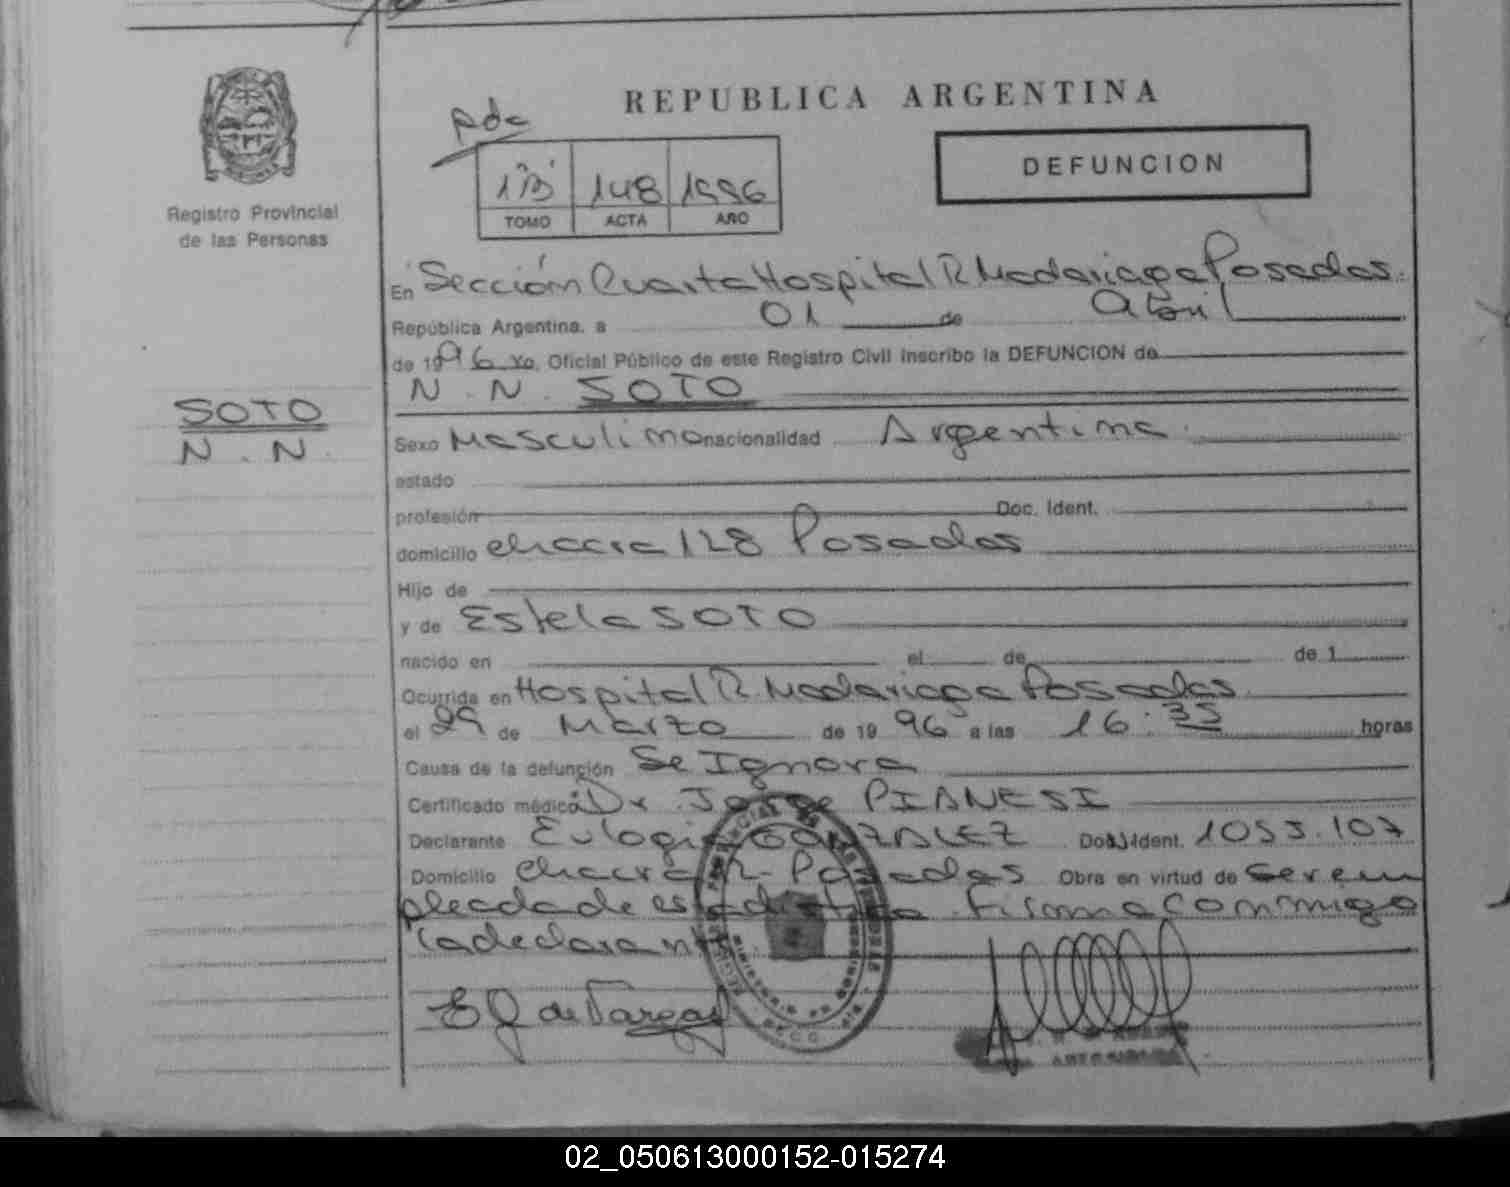 REPUBLICA ARGENTINA
DEFUNCION
1"B" 148 1996
TOMO ACTA AÑO
Registro Provincial
de las Personas
En Sección Cuarta Hospital R. Madariaga Posadas.
República Argentina, a 01 de Abril
de 1996 yo, Oficial Público de este Registro Civil Inscribo la DEFUNCION de
N. N. SOTO
SOTO
N. N.
Sexo Masculino nacionalidad Argentina
estado
profesión Doc. Ident.
domicilio chacra 128 Posadas
Hijo de
y de Estela SOTO
nacido en el de de 1
Ocurrida en Hospital R. Madariaga Posadas
el 29 de Marzo de 1996 a las 16:35 horas
Causa de la defunción Se Ignora
Certificado médico Dr. Jorge PIANESI
Declarante Eulogia GONZALEZ Doc. Ident.
Domicilio chacra Posadas Obra en virtud de ser em
pleada de estadistica. Firma conmigo
la declarante
E G de Vargas
02_050613000152-015274